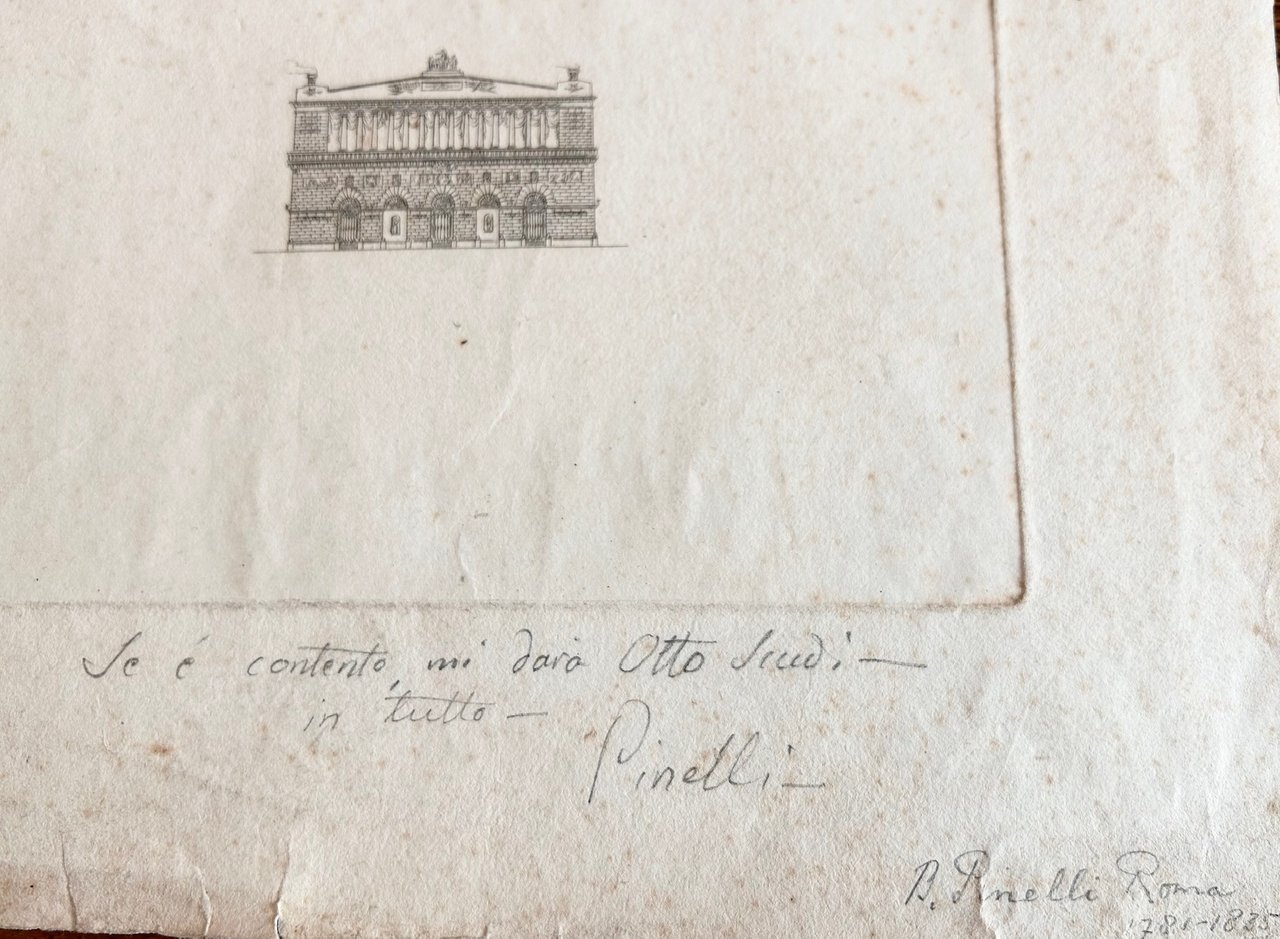 Se é contento, mi darà Otto Scudi —
in tutto —
Pinelli —
B. Pinelli Roma
1781-1835